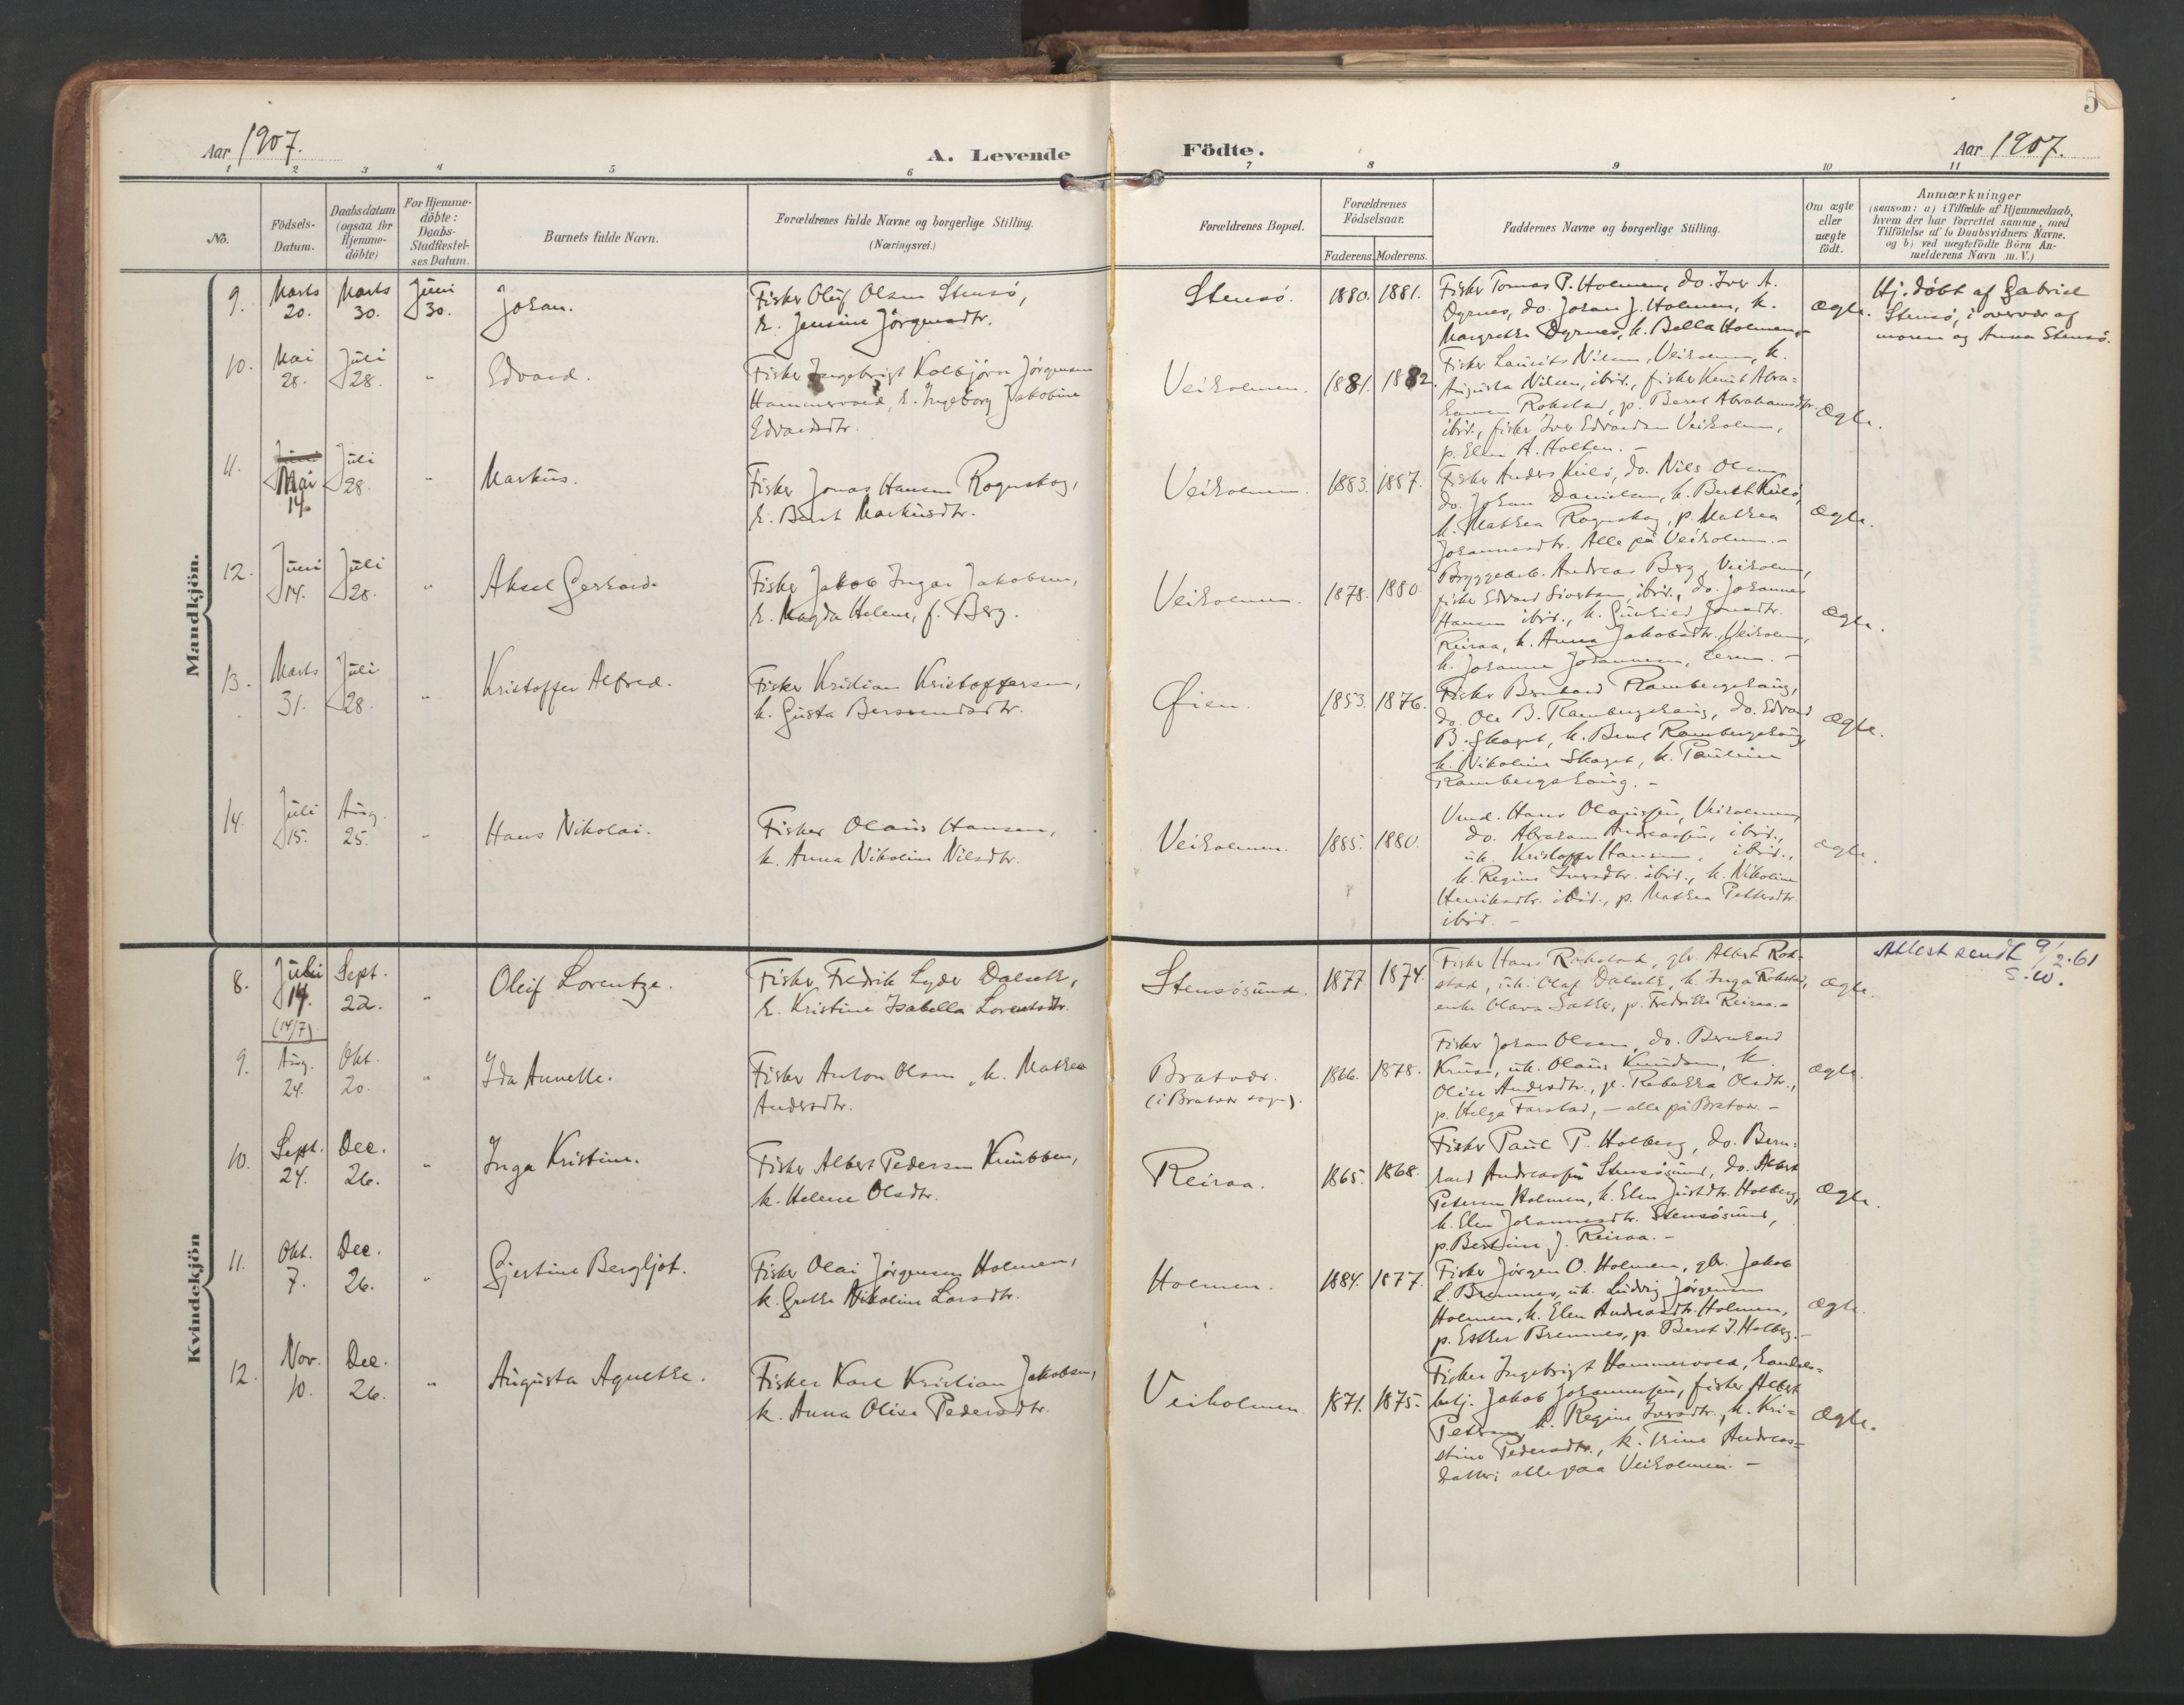 5
Aar 1907.
A. Levende Födte.
Aar 1907.
1 2 3 4 5 6 7 8 9 10 11
No.
Födsels-
Datum.
Daabsdatum
(ogsaa for
Hjemme-
döbte)
For Hjemme-
döbte:
Daabs-
Stadfæstel-
ses Datum.
Barnets fulde Navn.
Forældrenes fulde Navne og borgerlige Stilling.
(Næringsvei.)
Forældrenes Bopæl.
Forældrenes
Födselsaar.
Faderens. Moderens.
Faddernes Navne og borgerlige Stilling.
Om ægte
eller
uægte
födt.
Anmærkninger
(saasom: a) i Tilfælde af Hjemmedaab,
hvem der har forrettet samme, med
Tilföielse af to Daabsvidners Navne.
og b) ved uægtefödte Börn An-
melderens Navn m. V.)
Mandkjön.
9. Marts 20. Marts 30. Juni 30. Johan.
Fisker Oluf Olsen Stensö,
h. Jensine Jörgensdtr.
Stensö. 1880. 1881.
Fisker Tomas P. Holmen, do. Iver A.
Dyrnes, do. Johan J. Holmen, k.
Margrethe Dyrnes, k. Bella Holmen.-
Ægte.
Hj. döbt af Gabriel
Stensö, i overvær af
moren og Anna Stensö.
10. Mai 28. Juli 28. " Edvard.
Fisker Ingebrigt Kolbjörn Jörgensen
Hammervold, h. Ingeborg Jakobine
Edvardsdtr.
Veiholmen. 1881. 1882.
Fisker Laurits Nilsen, Veiholmen, k.
Augusta Nilsen, ibid., fisker Knut Abra=
hamsen Rokstad, p. Beret Abrahamsdtr.
ibid., fisker Iver Edvardsen Veiholmen,
p. Elen A. Holten. -
Ægte.
11. Juni Mai 14. Juli 28. " Markus.
Fisker Jonas Hansen Rognskog,
h. Berit Markusdtr.
Veiholmen. 1883. 1887.
Fisker Anders Kulö, do. Nils Olsen,
do. Johan Danielsen, k. Berit Kulö,
k. Mathea Rognskog, p. Mathea
Johannesdtr. Alle på Veiholmen.-
Ægte.
12. Juni 14. Juli 28. " Aksel Gerhard.
Fisker Jakob Ingar Jakobsen,
h. Magda Helene, f. Berg.
Veiholmen. 1878. 1880.
Bryggearb. Andreas Berg, Veiholmen,
fisker Edvard ibid., do. Johannes
Hansen ibid., k. Gunhild Jonsdtr.
Reiraa, k. Anna Jakobsdtr. Veiholmen,
k. Johanna Johannesen, -
Ægte.
13. Marts 31. Juli 28. " Kristoffer Alfred.
Fisker Kristian Kristoffersen,
k. Gusta Berssendsdtr.
Öien. 1853. 1876.
Fisker Bernhard Rambergshaug,
do. Ole B. Rambergshaug, do. Edvard
B. Skaget, k. Beret Rambergshaug,
k. Nikoline Skaget, k. Pauline
Rambergshaug. -
Ægte.
14. Juli 15. Aug. 25. " Hans Nikolai.
Fisker Olaus Hansen,
k. Anna Nikoline Nilsdtr.
Veiholmen. 1885. 1880.
Hans Olaussen, Veiholmen,
do. Abraham Andreassen, ibid.,
uk. Kristoffer Hansen, ibid.,
k. Regine Iversdtr. ibid., k. Nikoline
Henriksdtr. ibid., p. Mathea Pettersdtr.
ibid. -
Ægte.
Kvindekjön
8. Juli 14. (14/7) Sept. 22. " Oleif Lorentze.
Fisker Fredrik Lyder Dalseth,
h. Kristine Isabella Lorentsdtr.
Stensösund. 1877. 1874.
Fisker Hans Rokstad, gbr. Albert Rok-
stad, uk. Olaf Dalseth, k. Inga Rokstad,
enke Olava Sather, p. Fredrikke Reiraa.-
Ægte.
Attest sendt 9/2.61
S.W.
9. Aug. 24. Okt. 20. " Ida Annette.
Fisker Anton Olsen, k. Mathea
Andersdtr.
Bratvær.
(i Bratvær sogn).
1866. 1878.
Fisker Johan Olsen, do. Bernhard
Kruse, uk. Olaus Knudsen, k.
Olise Andersdtr., p. Rebekka Olsdtr.,
p. Helga Farstad, - alle på Bratvær. -
Ægte.
10. Sept. 24. Dec. 26. " Inga Kristine.
Fisker Albert Pedersen Knubben,
k. Helene Olsdtr.
Reiraa. 1865. 1868.
Fisker Paul P. Holberg, do. Bern=
hard Andreassen Stensösund, do. Albert
Petersen Holmen, k. Elen Justdtr. Holberg,
k. Elen Johannesdtr. Stensösund,
p. Bertine J. Reiraa. -
Ægte.
11. Okt. 7. Dec. 26. " Gjertine Bergljot.
Fisker Olai Jörgensen Holmen,
k. Grethe Nikoline Larsdtr.
Holmen. 1884. 1877.
Fisker Jörgen O. Holmen, gbr. Jakob
L. Bremnes, uk. Ludvig Jörgensen
Holmen, k. Elen Andreasdtr. Holmen,
p. Esther Bremnes, p. Beret J. Holberg.-
Ægte.
12. Nov. 10. Dec. 26. " Augusta Agnethe.
Fisker Karl Kristian Jakobsen,
k. Anna Olise Pedersdtr.
Veiholmen. 1871. 1875.
Fisker Ingebrigt Hammervold, handels=
betj. Jakob Johannessen, fisker Albert
Petersen, k. Regine Iversdtr., k. Kri=
stine Pedersdtr., k. Trine Andreas=
datter; alle paa Veiholmen. -
Ægte.